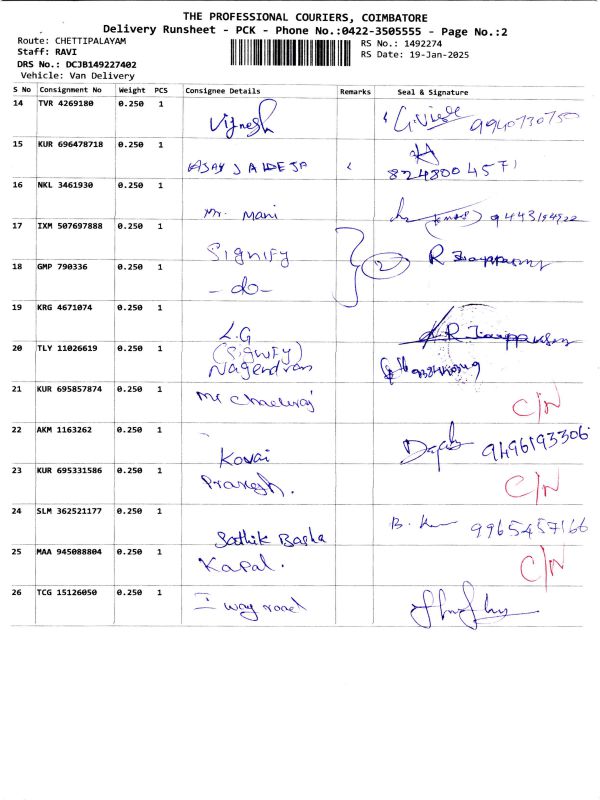 THE PROFESSIONAL COURIERS, COIMBATORE
Delivery Runsheet - PCK - Phone No.:0422-3505555 - Page No.:2
Route: CHETTIPALAYAM
RS No.: 1492274
Staff: RAVI
RS Date: 19-Jan-2025
DRS No.: DCJB149227402
Vehicle: Van Delivery
S No Consignment No Weight PCS Consignee Details Remarks Seal & Signature
14 TVR 4269180 0.250 1 Vijnesh 9940730750
15 KUR 696478718 0.250 1 AJAY JADEJA
16 NKL 3461930 0.250 1 Mr. Mani
17 IXM 507697888 0.250 1 Signify 2
18 GMP 790336 0.250 1 - do -
19 KRG 4671074 0.250 1 L.G
(Signify)
20 TLY 11026619 0.250 1 Nagendran
21 KUR 695857874 0.250 1 Mr C/N
22 AKM 1163262 0.250 1 Kovai 9496193306
23 KUR 695331586 0.250 1 C/N
24 SLM 362521177 0.250 1 Sathik Basha 9965457166
25 MAA 945088804 0.250 1 Kapal. C/N
26 TCG 15126050 0.250 1 I way road